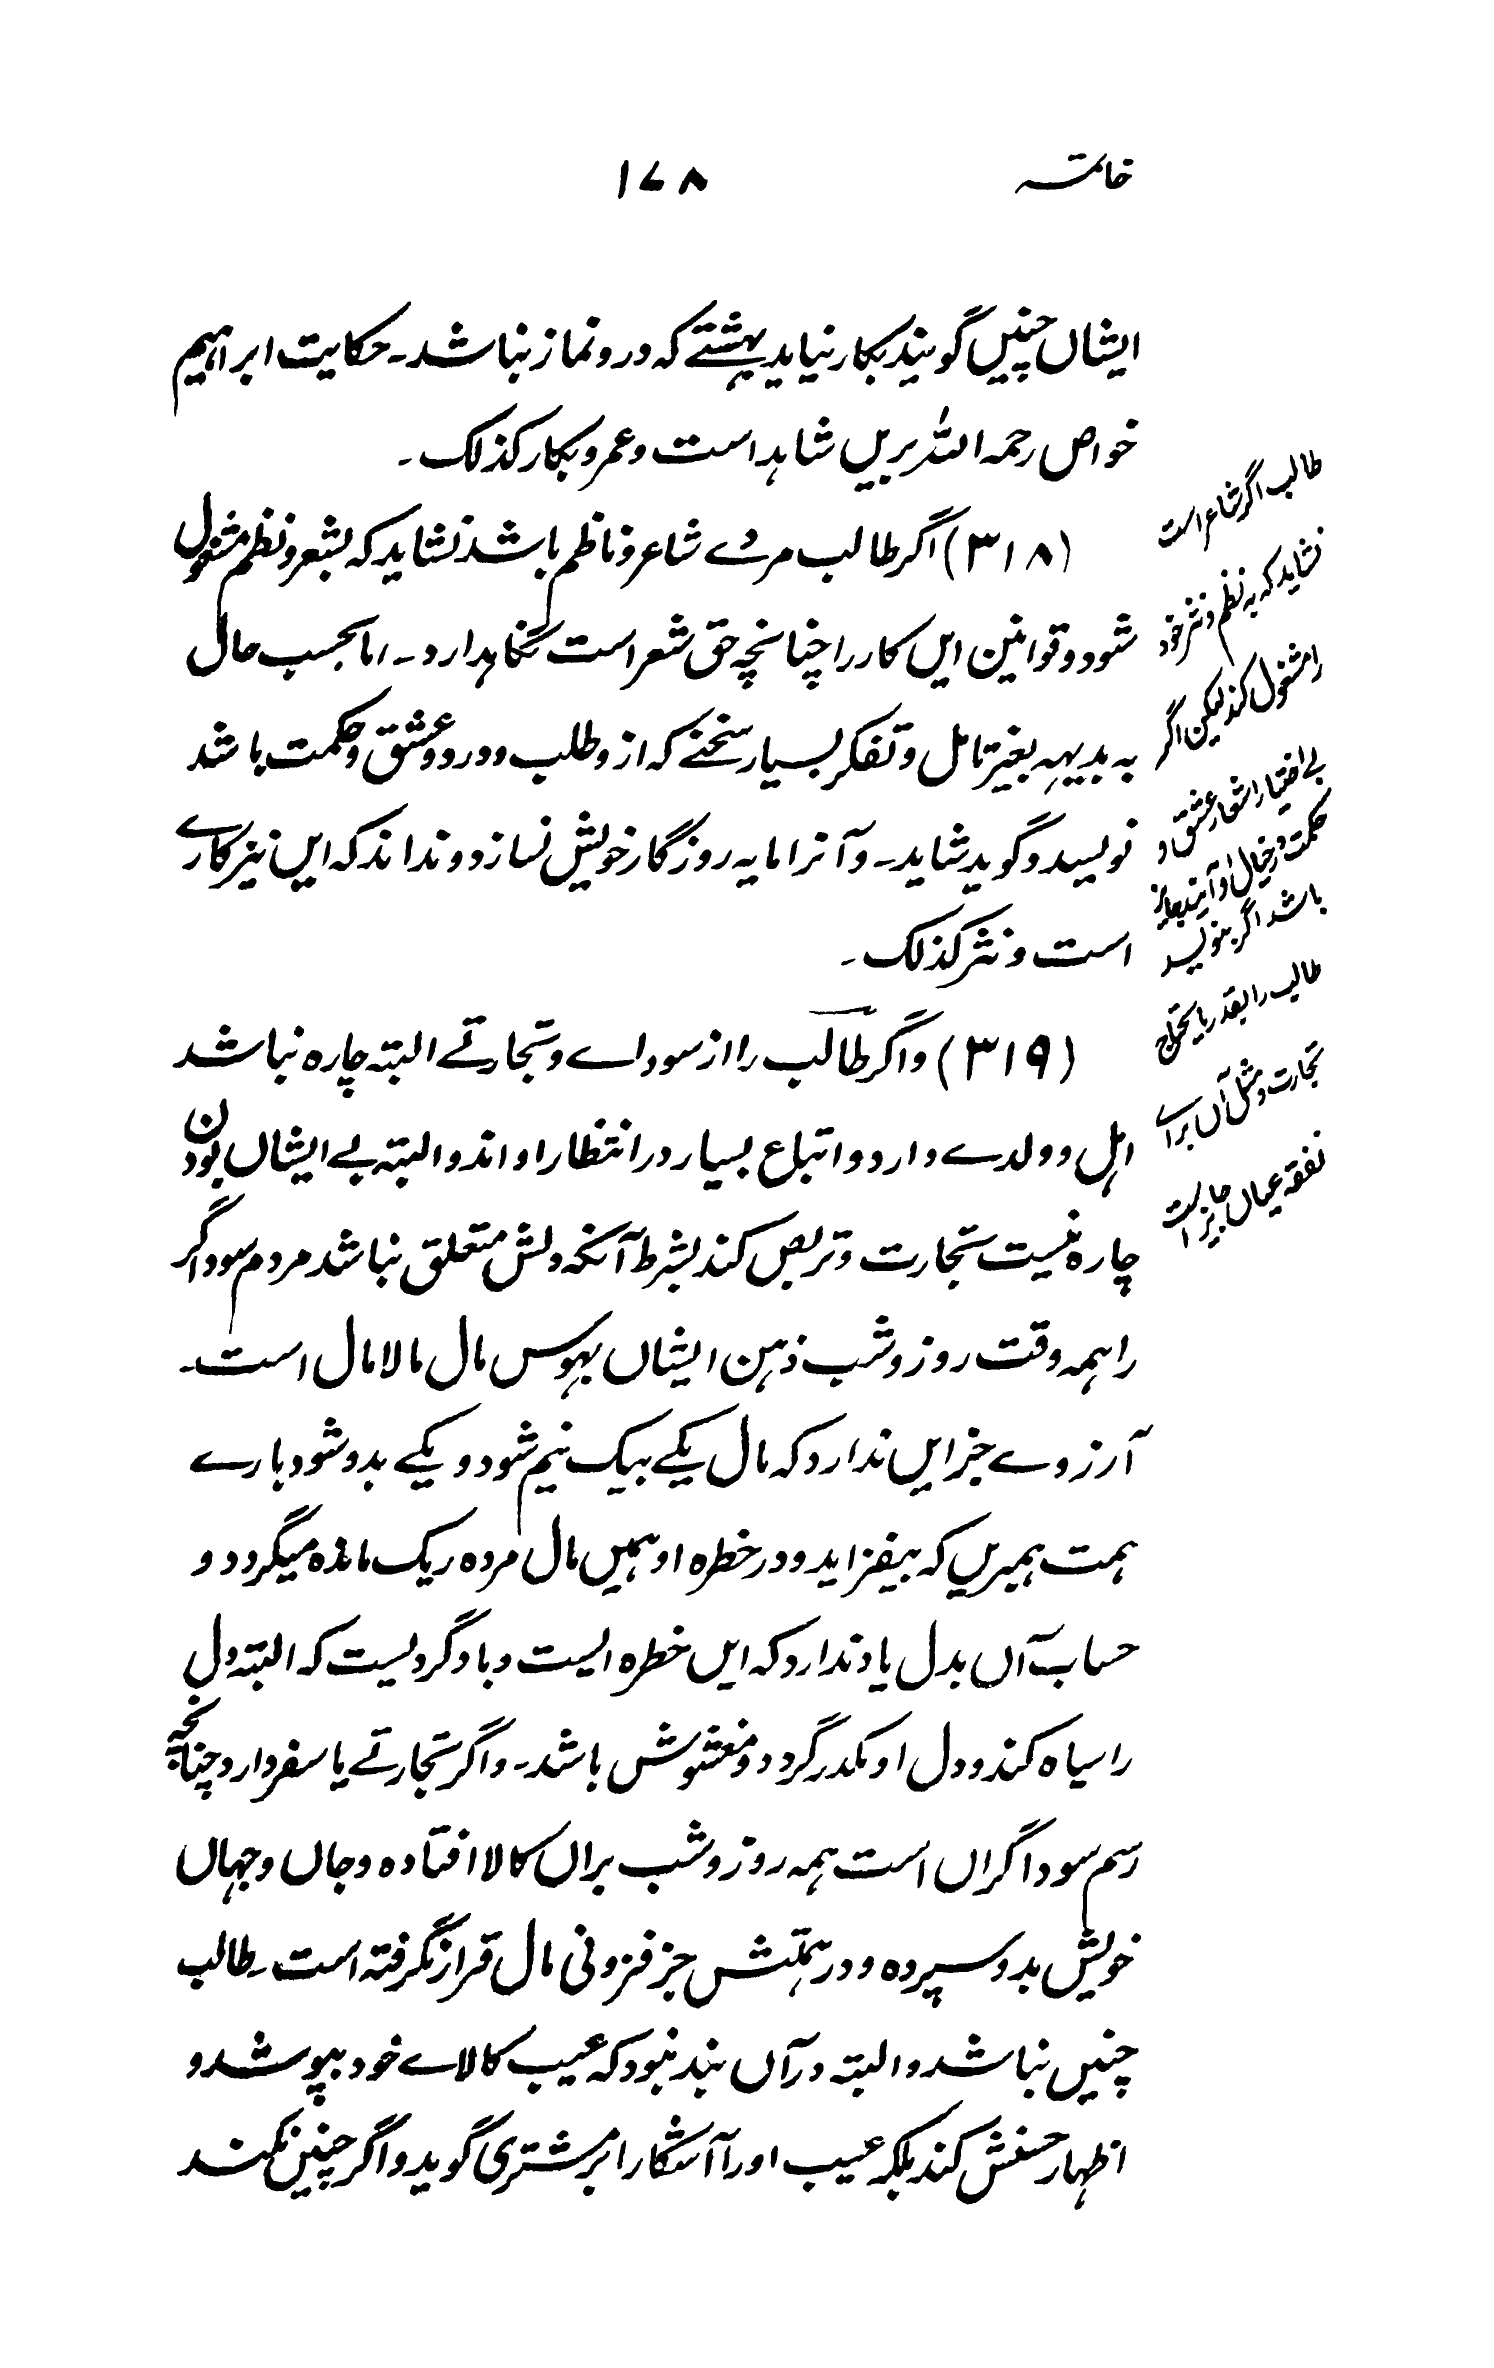 خاتمہ
۱۷۸
ایشاں چنیں گویند بکار نیاید بہشتے کہ درو نماز نباشد۔ حکایت ابراہیم
خواص رحمہ اللہ بریں شاہد است و عمرو بکار کذلک۔
(۳۱۸) اگر طالب مردے شاعر و ناظم باشد نشاید کہ بشعر و نظم مشغول
شود و قوانین ایں کار را چنانچہ حق شعر است نگاہدارد۔ اما بحسب حال
بہ بدیہہ بغیر تامل و تفکر بسیار سخنے کہ از و طلب و درد و عشق و حکمت باشد
نویسد و گوید شاید۔ و آنرا مایہ روزگار خویش نسازد و نداند کہ ایں نیز کارے
است و نثر کذلک۔
(۳۱۹) و اگر طالب را از سوداے و تجارتے البتہ چارہ نباشد
اہل و ولدے دارد و اتباع بسیار در انتظار او اند و البتہ بے ایشاں بودن
چارہ نیست تجارت و تربص کند بشرط آنکہ دلش متعلق نباشد مردم سوداگر
را ہمہ وقت روز و شب ذہن ایشاں بہوس مال مالامال است۔
آرزوے جز ایں ندارد کہ مال یکے بیک نیم شود و یکے بدو شود بارے
ہمت ہمبریں کہ بیفزاید و در خطرہ او ہمیں مال مردہ ریک ماندہ میگردد و
حساب آں بدل یاد ندارد کہ ایں خطرہ ایست و باد گردیست کہ البتہ دل
را سیاہ کند و دل او مکدر گردد و مغشوش باشد۔ و اگر تجارتے با سفر دارد چنانچہ
رسم سوداگراں است ہمہ روز و شب براں کالا افتادہ و جاں و جہاں
خویش بدو سپردہ و در ہمتش جز فزونی مال قرار نگرفتہ است۔ طالب
چنیں نباشد و البتہ در آں بند نبود کہ عیب کالاے خود بپوشد و
اظہار حسنش کند بلکہ عیب او را آشکارا بر مشتری گوید و اگر چنین نکند
طالب اگر شاعر است
نشاید کہ بہ نظم و نثر خود
را مشغول کند لیکن اگر
بے اختیار اشعار عشق و
حکمت در خیال او آیند جائز
باشد اگر بنویسد
طالب را بقدر مایحتاج
تجارت و مثل آں براے
نفقہ عیال جائز است